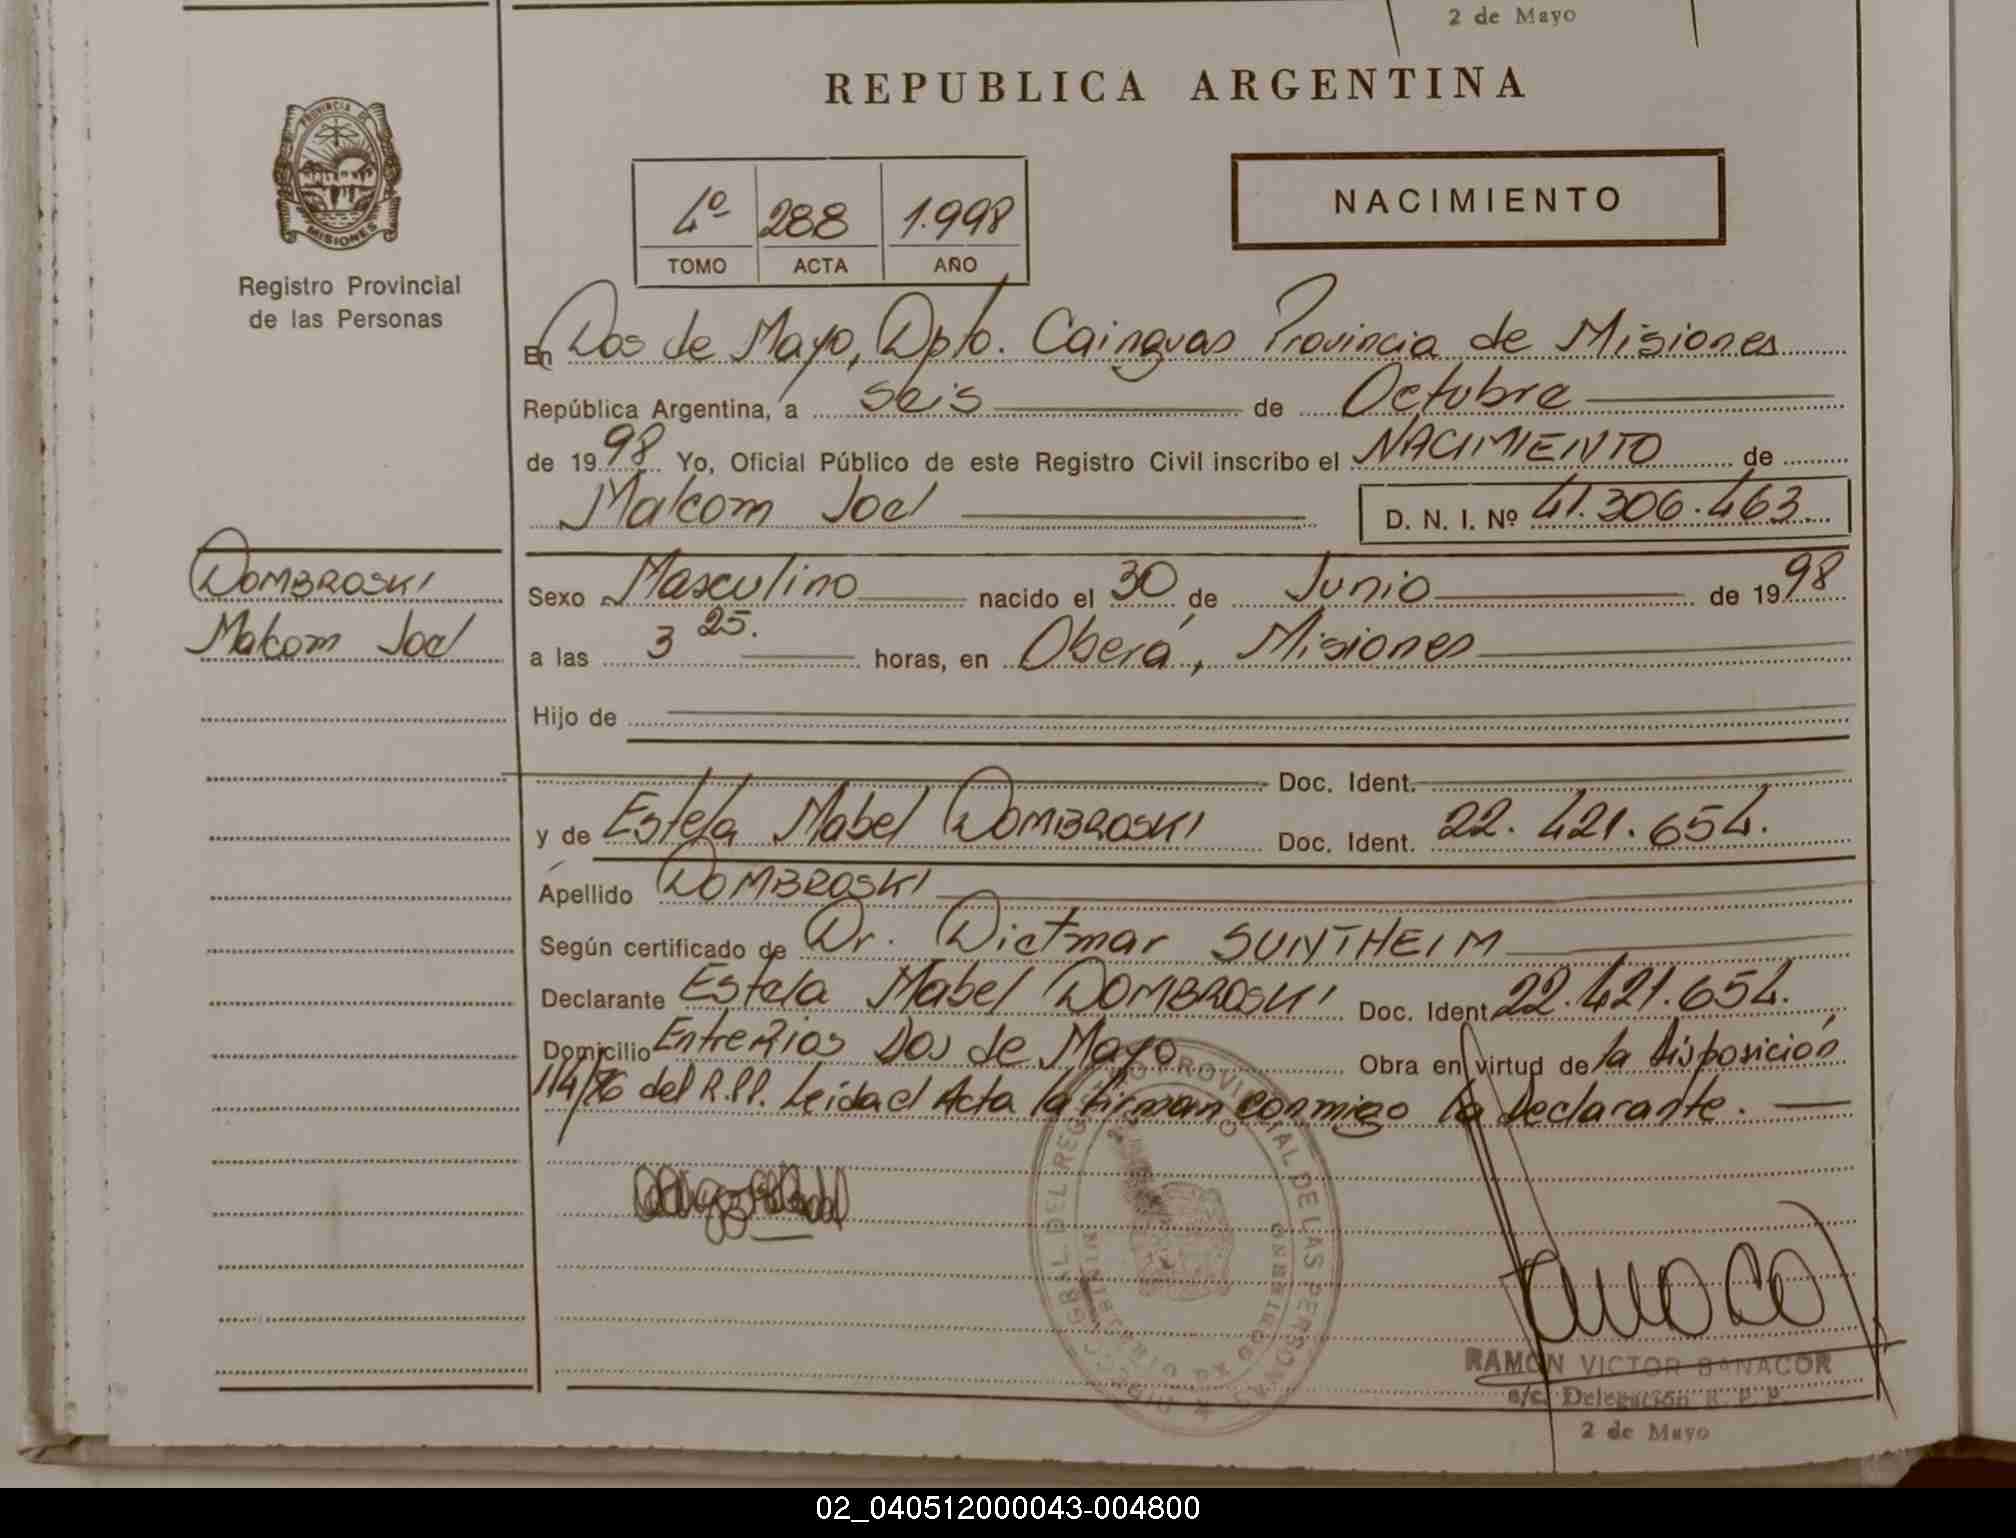 2 de Mayo
REPUBLICA ARGENTINA
PROVINCIA DE
MISIONES
Registro Provincial
de las Personas
4º 288 1.998
TOMO ACTA AÑO
NACIMIENTO
En Dos de Mayo, Dpto. Cainguas Provincia de Misiones
República Argentina, a seis de Octubre
de 1998 Yo, Oficial Público de este Registro Civil inscribo el NACIMIENTO de
Malcom Joel D. N. I. Nº 41.306.463.
DOMBROSKI
Malcom Joel
Sexo Masculino nacido el 30 de Junio de 1998
a las 3 25. horas, en Oberá, Misiones
Hijo de
Doc. Ident.
y de Estela Mabel DOMBROSKI Doc. Ident. 22.421.654.
Apellido DOMBROSKI
Según certificado de Dr. Dietmar SUNTHEIM
Declarante Estela Mabel DOMBROSKI Doc. Ident. 22.421.654.
Domicilio Entre Rios Dos de Mayo Obra en virtud de la disposición
114/76 del R.P.P. Leida el Acta la firman conmigo la Declarante.
REGISTRO PROVINCIAL DE LAS PERSONAS
RAMON VICTOR BANACOR
a/c. Delegación R. P. P.
2 de Mayo
02_040512000043-004800